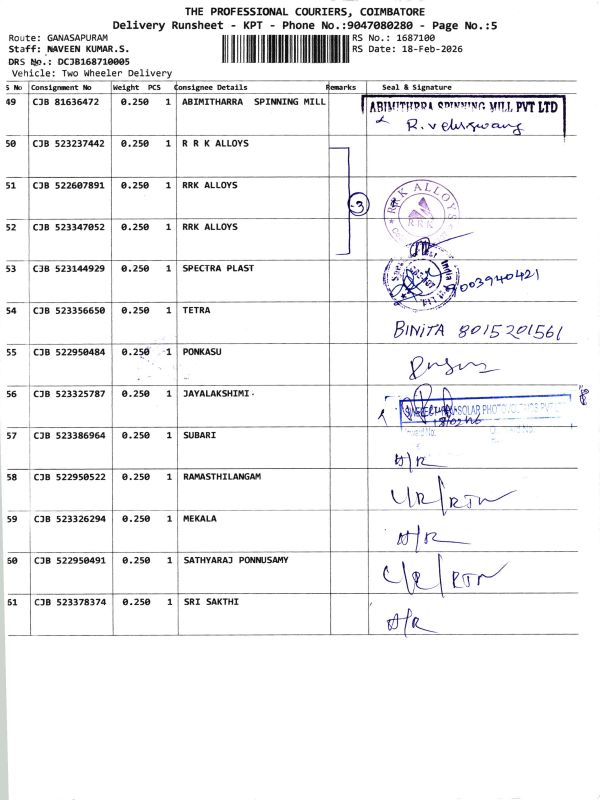 THE PROFESSIONAL COURIERS, COIMBATORE
Delivery Runsheet - KPT - Phone No.:9047080280 - Page No.:5
Route: GANASAPURAM RS No.: 1687100
Staff: NAVEEN KUMAR.S. RS Date: 18-Feb-2026
DRS No.: DCJB168710005
Vehicle: Two Wheeler Delivery
S No Consignment No Weight PCS Consignee Details Remarks Seal & Signature
49 CJB 81636472 0.250 1 ABIMITHARRA SPINNING MILL ABIMITHRRA SPINNING MILL PVT LTD
50 CJB 523237442 0.250 1 R R K ALLOYS
51 CJB 522607891 0.250 1 RRK ALLOYS RRK ALLOYS
3 RRK
52 CJB 523347052 0.250 1 RRK ALLOYS
53 CJB 523144929 0.250 1 SPECTRA PLAST 9003940421
54 CJB 523356650 0.250 1 TETRA
BINITA 8015201561
55 CJB 522950484 0.250 1 PONKASU
56 CJB 523325787 0.250 1 JAYALAKSHMI.
SOLAR PHOTOVOLTAICS PVT
57 CJB 523386964 0.250 1 SUBARI
A/R
58 CJB 522950522 0.250 1 RAMASTHILANGAM
C/R/RTN
59 CJB 523326294 0.250 1 MEKALA
A/R
60 CJB 522950491 0.250 1 SATHYARAJ PONNUSAMY
C/R/RTN
61 CJB 523378374 0.250 1 SRI SAKTHI
A/R